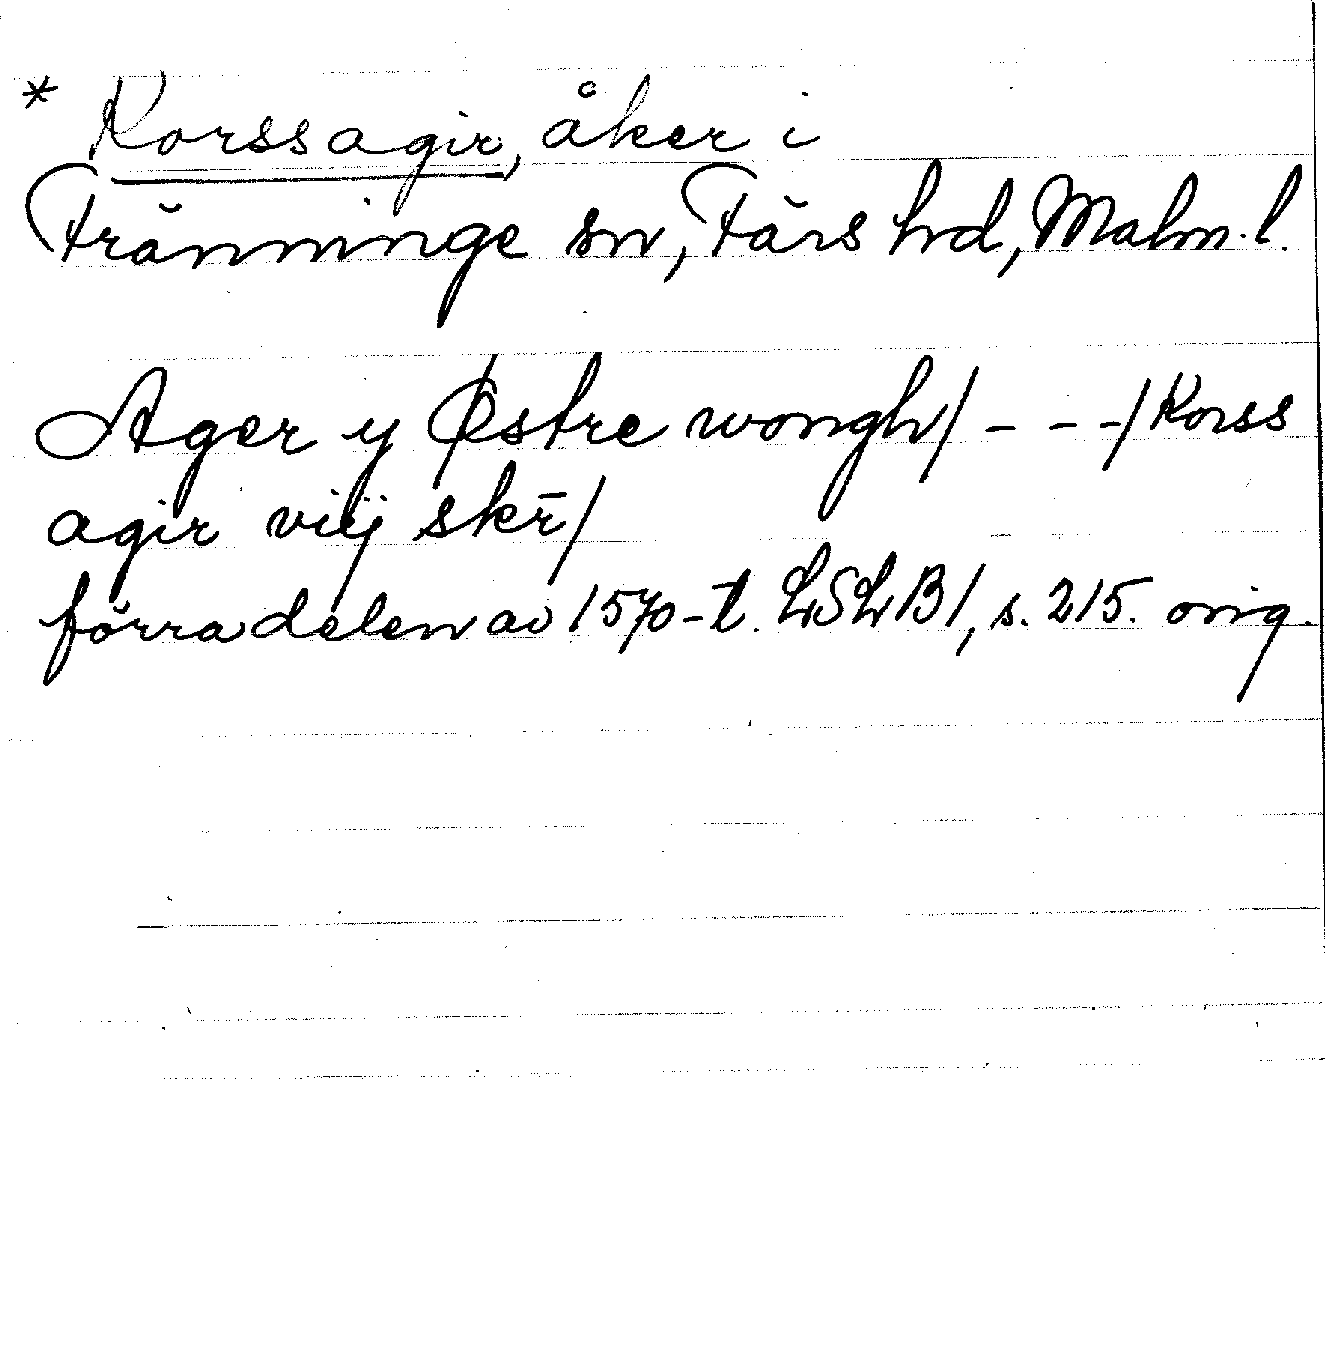 * Korssagir, åker i
Fränninge sn, Färs hd, Malm. l.
Ager y Østre wongh/ - - -/ Korss
agir viij skr̄/
förra delen av 1570-t. LSLB1, s. 215. orig.